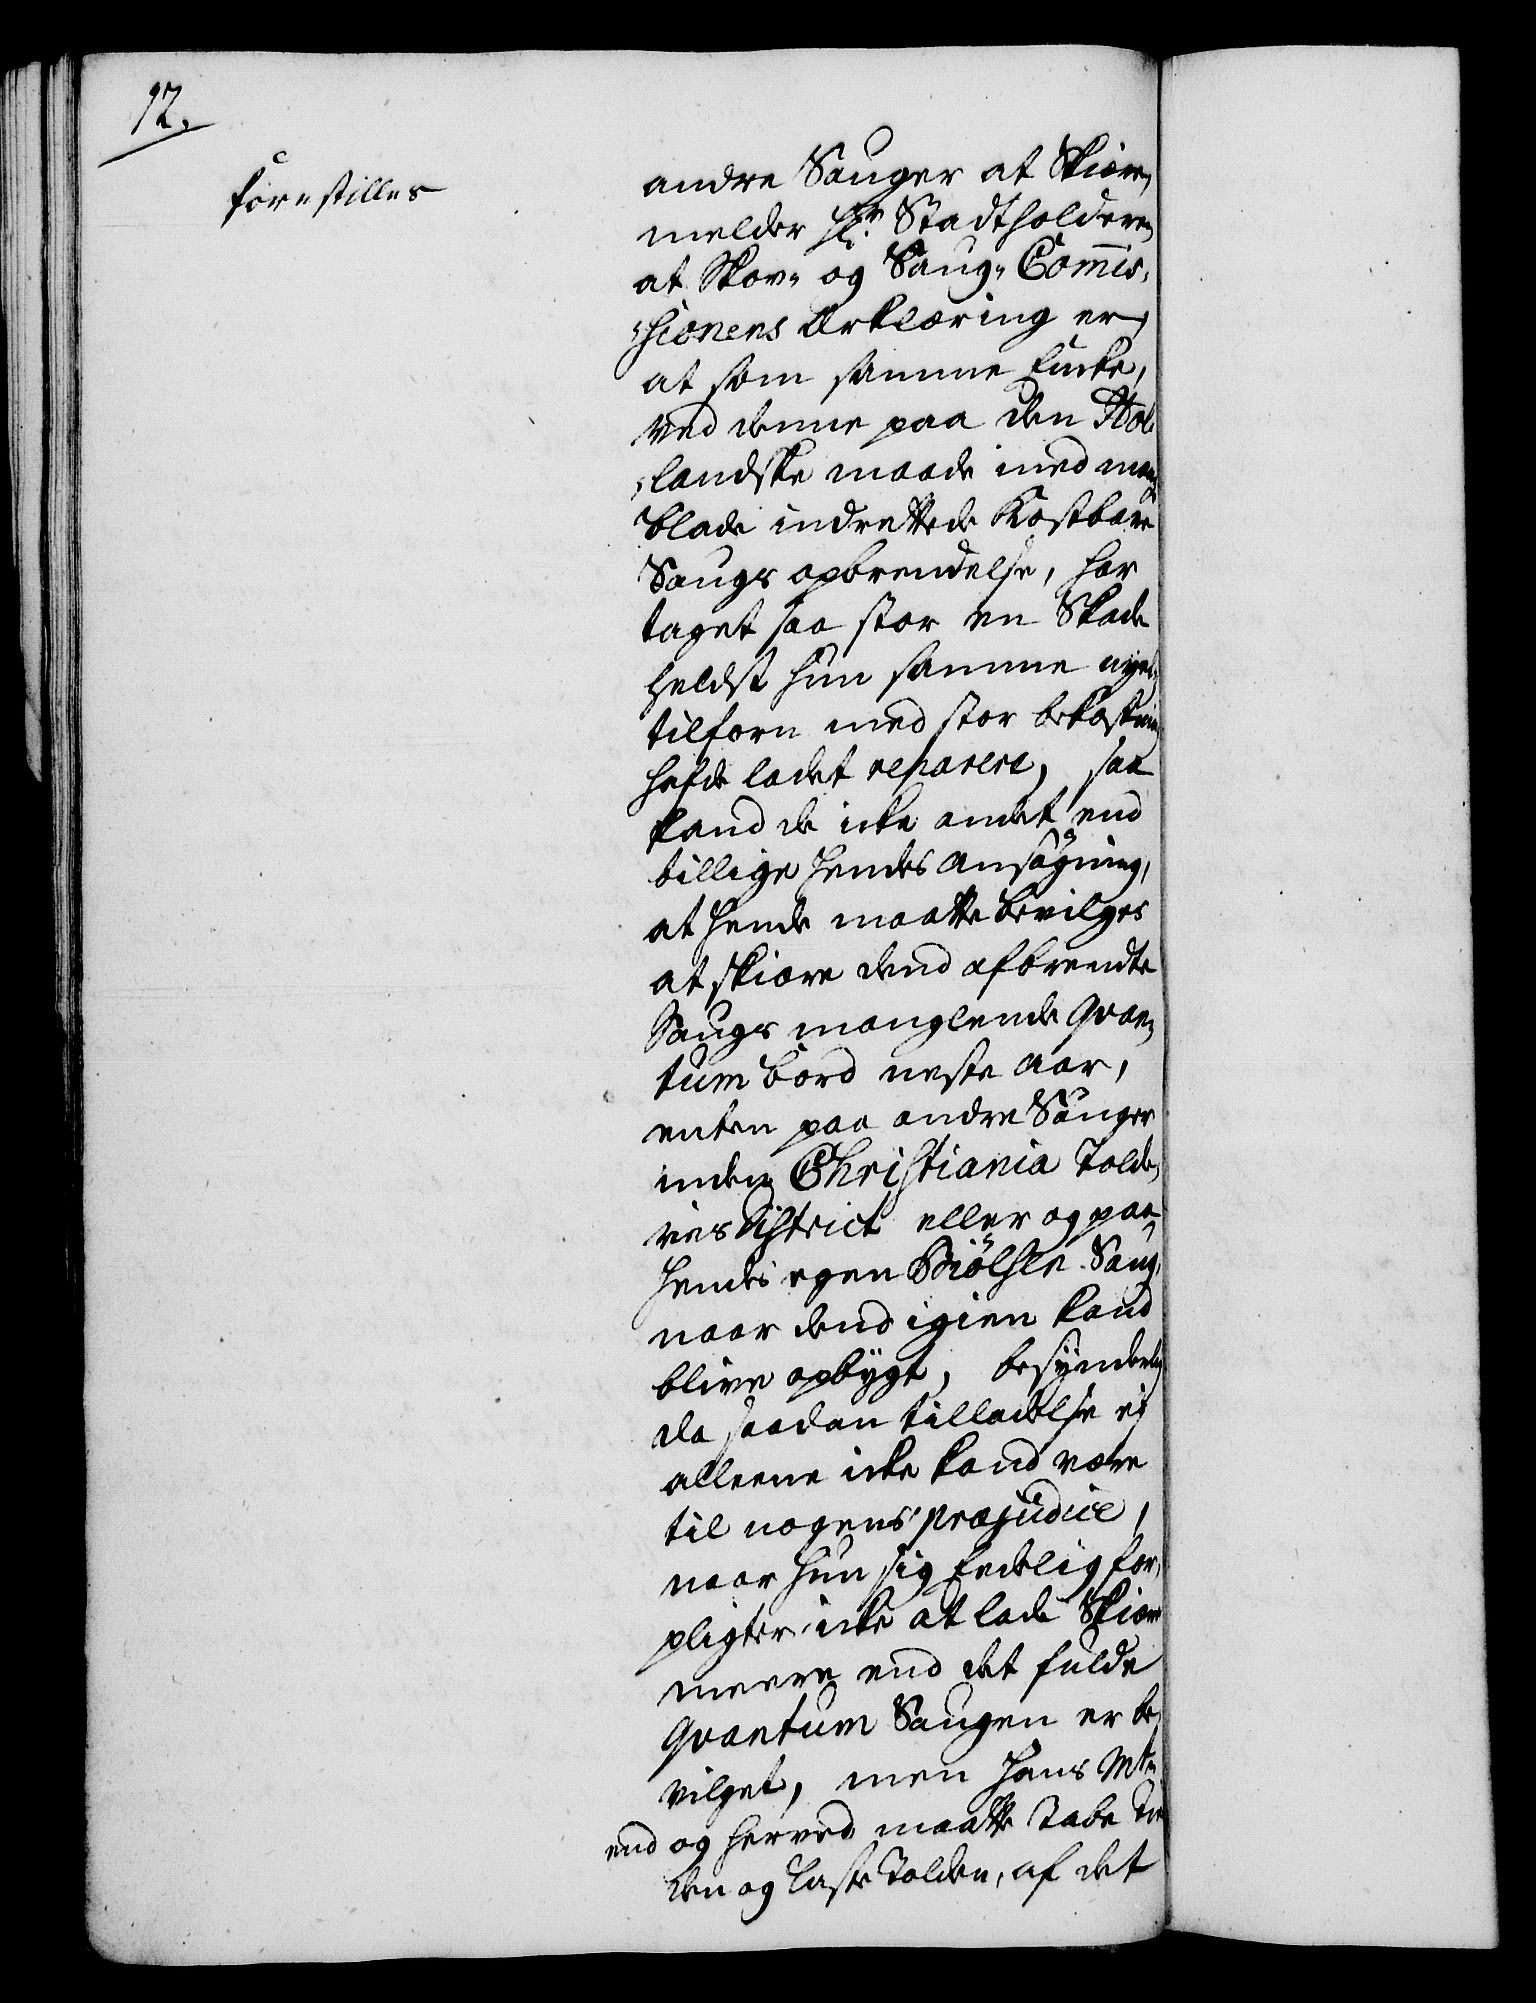 12.
forestilles
andre Sauger at Skiære,
melder Hr. Stadtholderen
at Skov- og Saug-Commis-
sionens Erklæring er,
at som samme Encke,
ved denne paa den Hol-
landske maade med mange
blade indrettede Kostbare
Saugs opbrendelse, har
taget saa stor en Skade
heldst hun samme nyelig
tilforn med stor bekostning
hafde ladet reparere, saa
kand de icke andet end
billige hendes Ansøgning,
at hende maatte bevilges
at skiære dend afbrendte
Saugs manglende Qvan-
tum bord neste Aar,
enten paa andre Sauger
inden Christiania Tolde-
ries District eller og paa
hendes egen Biølsen Saug,
naar dend igien kand
blive opbygt, besynderlig
da saadan tilladelse ej
alleene icke kand være
til nogens præjudice,
naar hun sig Eedelig for-
pligter icke at lade Skiære
meere end det fulde
Qvantum Saugen er be-
vilget, men Hans Mt.
end og herved maatte Tabe Tien-
den og Laste Tolden, af det